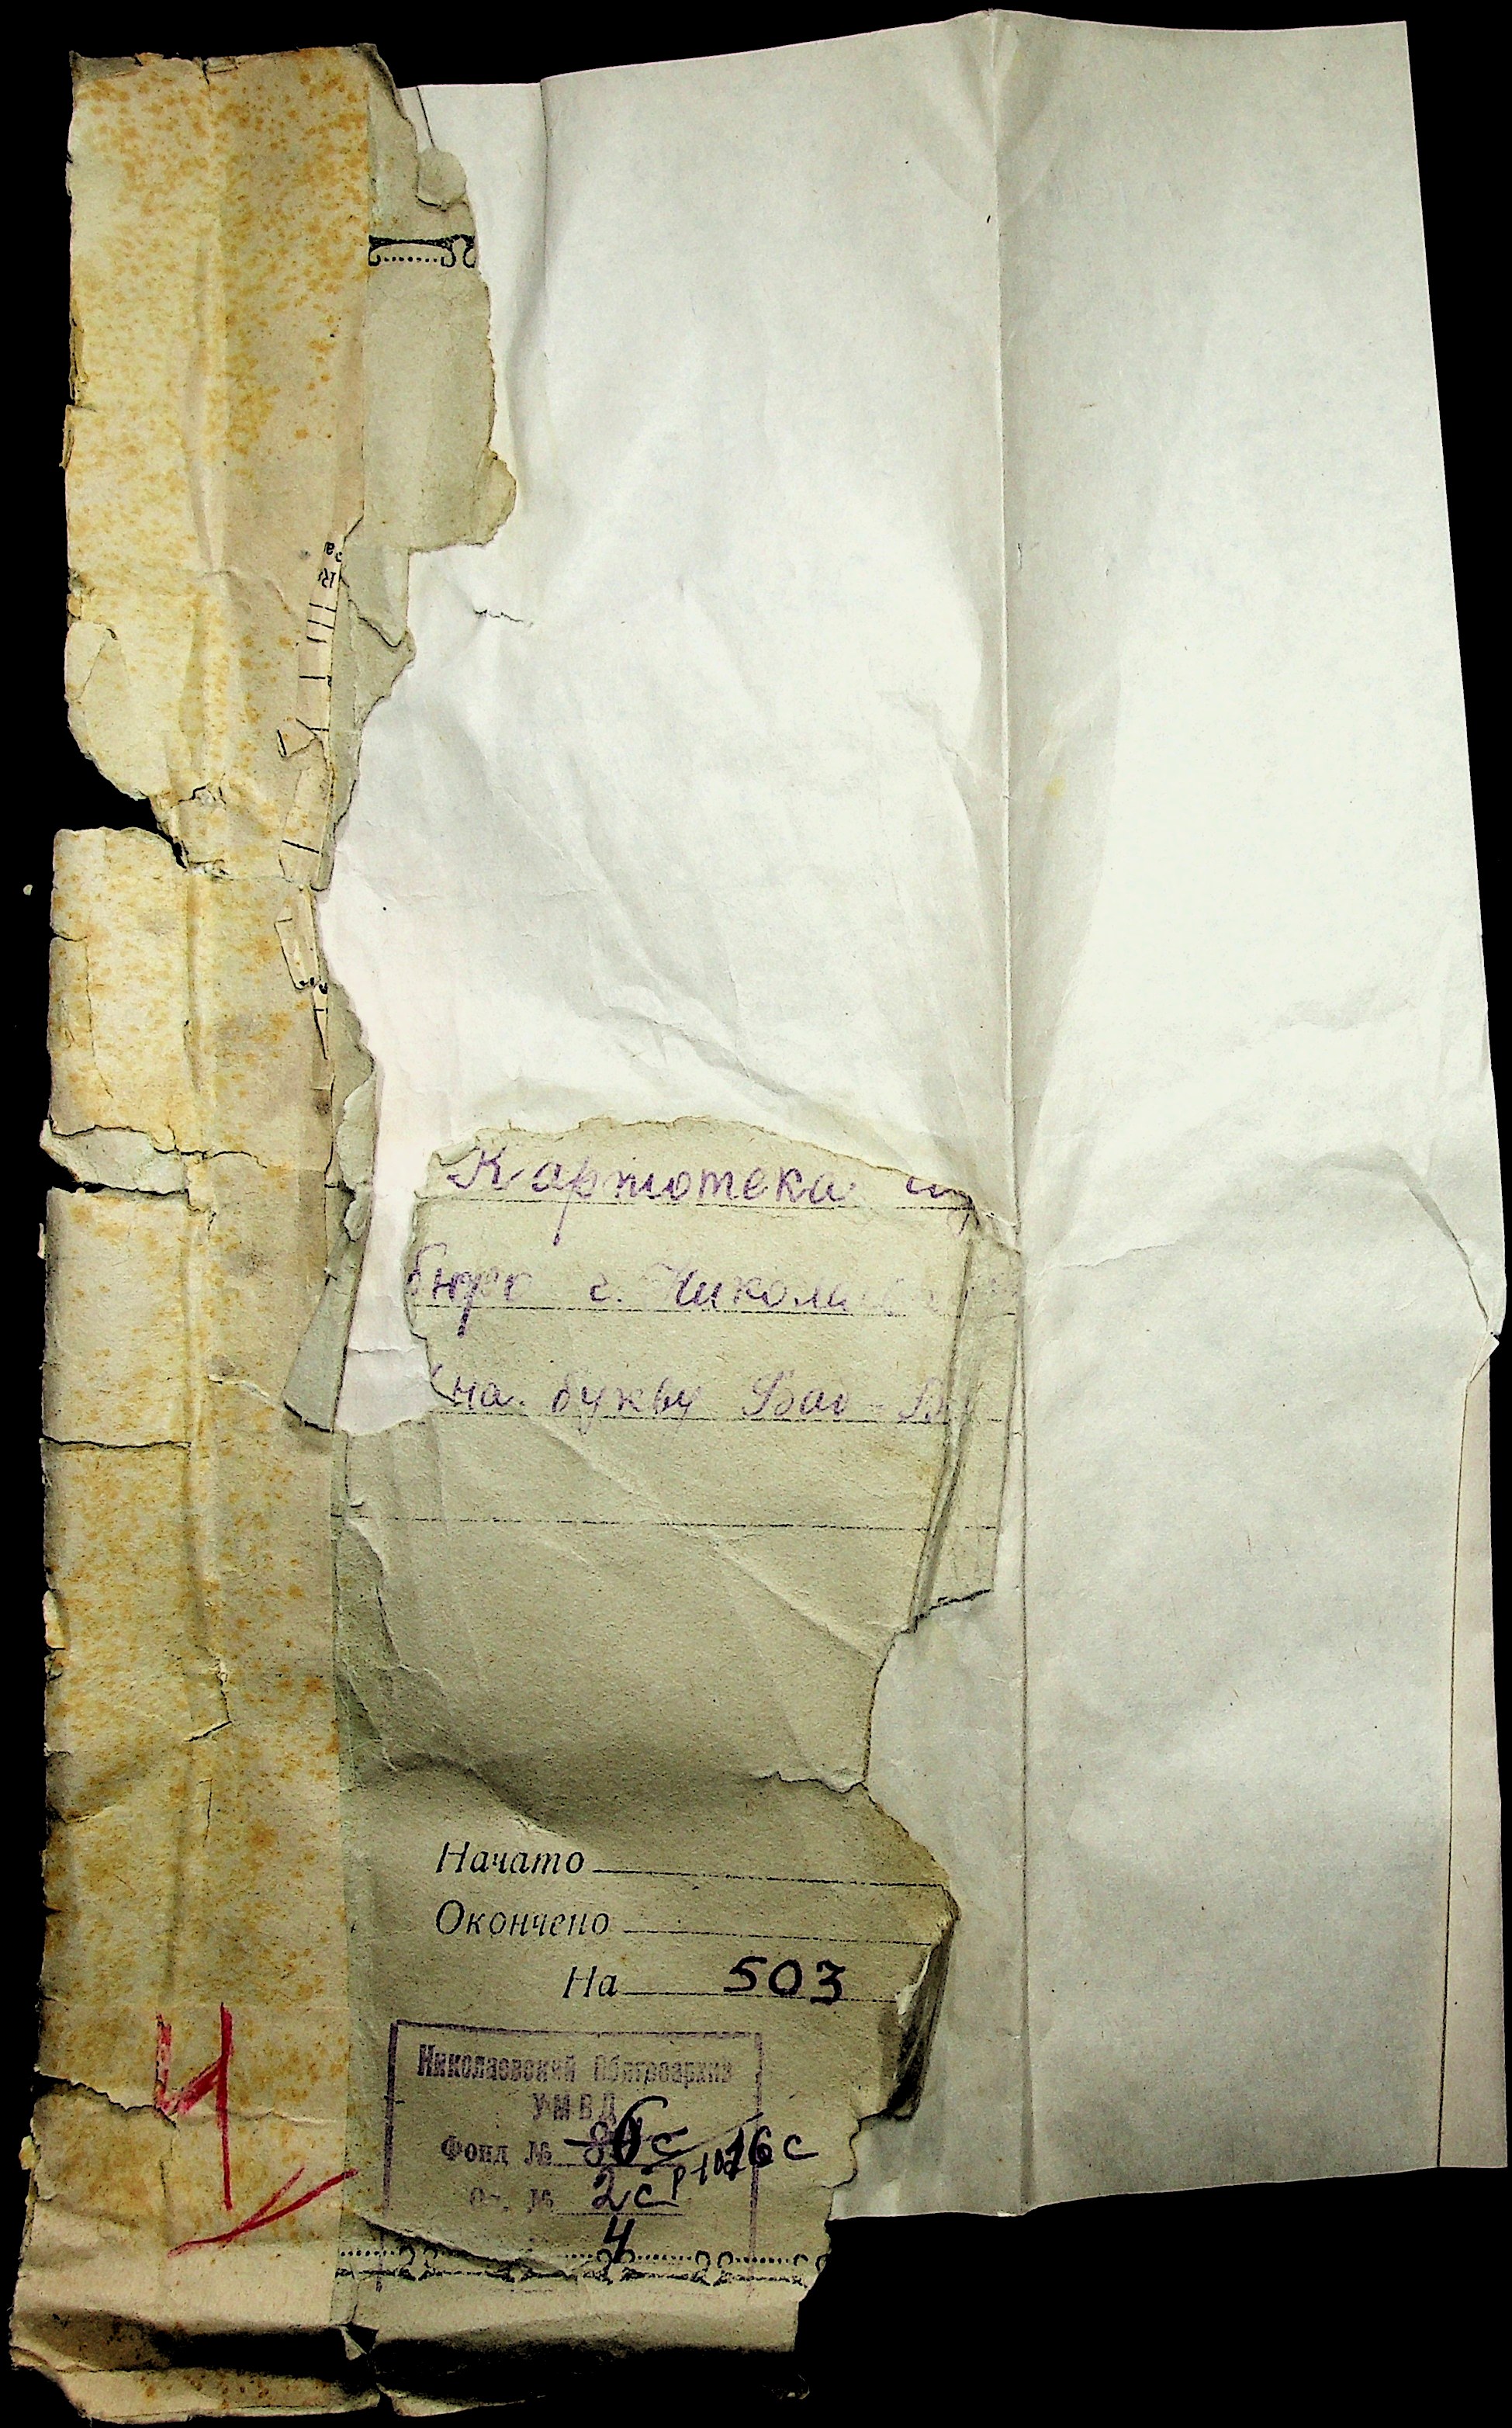 Картотека
бюро г. Никола
(на букву Ваг - В
Начато
Окончено
На 503
Николаевский Облгосархив
УМВД
Фонд № 86с Р-1016 с
Оп. № 2с
4
4